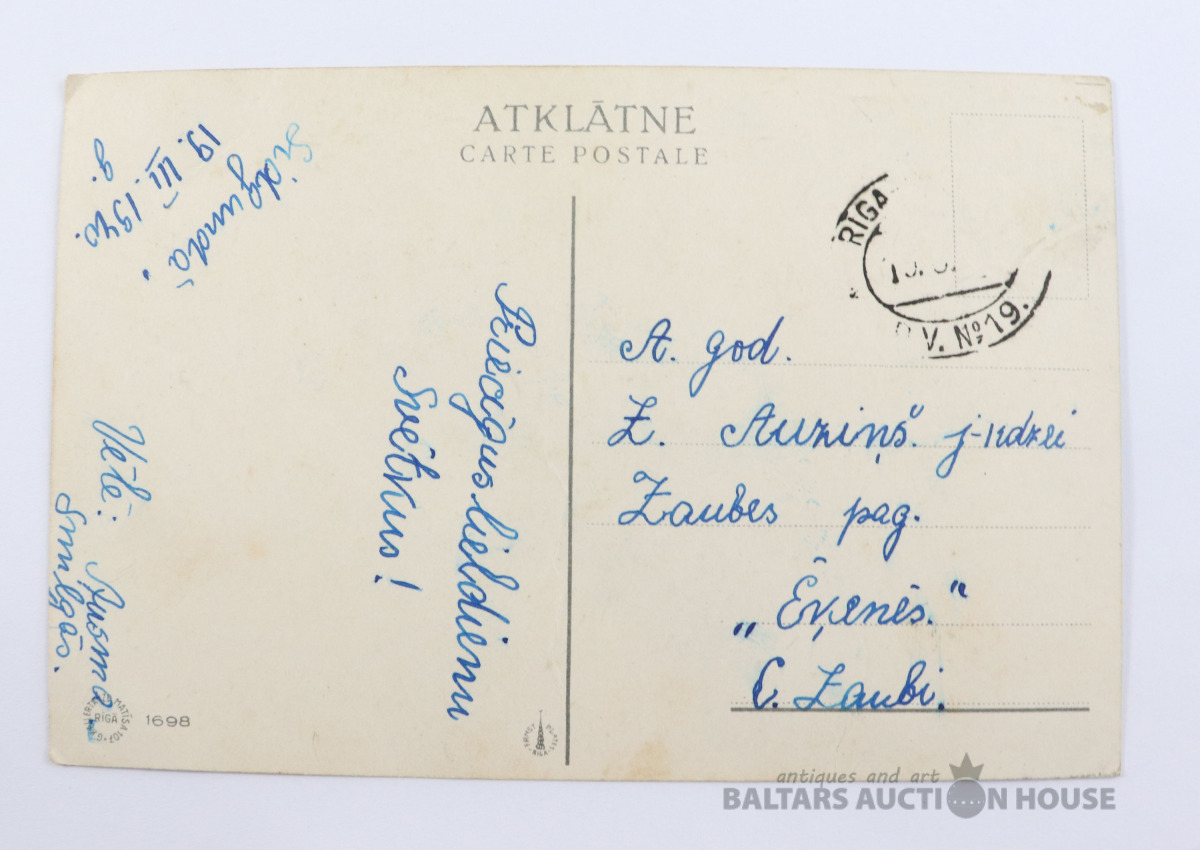 ATKLĀTNE
CARTE POSTALE
Sidgundā
19. III. 1940.
g.
Priecīgus lieldienu
Svētkus!
Vēlē: Ausma
Smilgās.
RĪGĀ
1698
RĪGA
V. № 19.
A. god.
Z. Auziņš. j-kdzei
Zaubes pag.
„Ēķenēs.“
C. Zaubi.
antiques and art
BALTARS AUCTION HOUSE